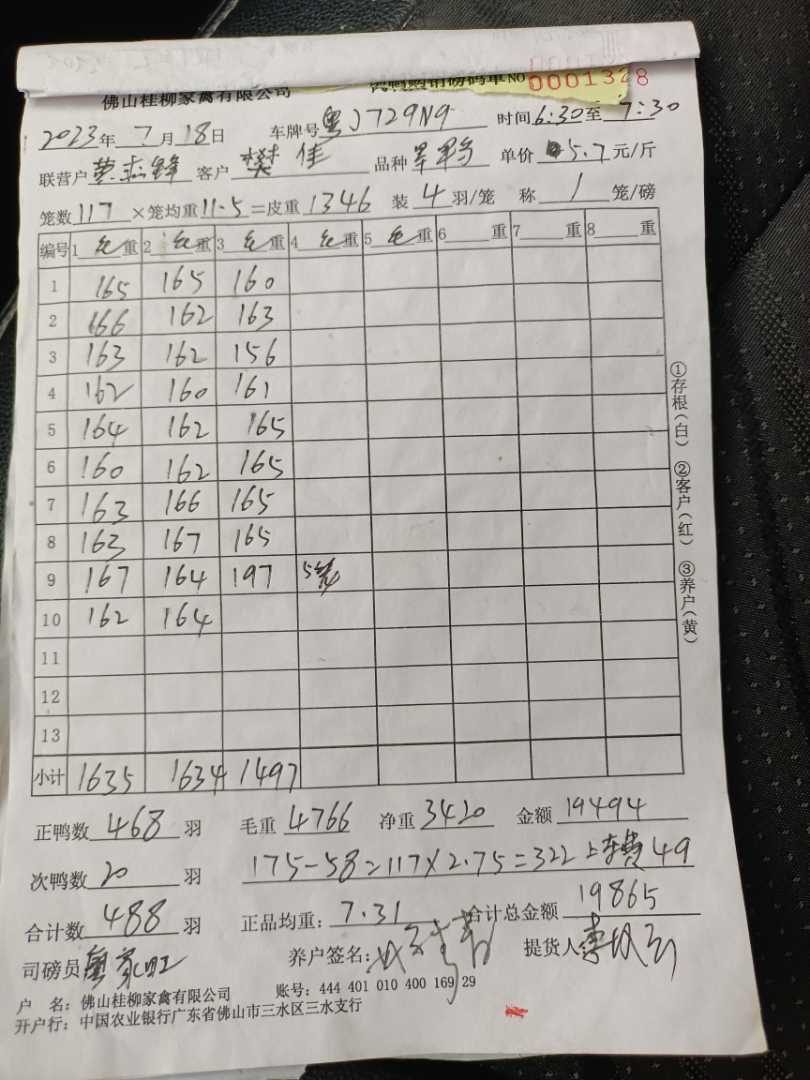 佛山桂柳家禽有限公司 肉鸭购销磅码单 NO 0001328
2023年7月18日 车牌号粤J729N9 时间6:30至7:30
联营户 客户樊佳 品种 单价5.7元/斤
笼数117×笼均重11.5=皮重1346 装4羽/笼 称1笼/磅
编号 1毛重 2毛重 3毛重 4毛重 5毛重 6重 7重 8重
1 165 165 160
2 166 162 163
3 163 162 156
4 162 160 161
5 164 162 165
6 160 162 165
7 163 166 165
8 163 167 165
9 167 164 197 5笼
10 162 164
11
12
13
小计 1635 1634 1497
①存根(白) ②客户(红) ③养户(黄)
正鸭数468羽 毛重4766 净重3420 金额19494
次鸭数20羽 175-58=117×2.75=322 上车费49
合计数488羽 正品均重:7.31 合计总金额19865
司磅员 养户签名: 提货人
户 名:佛山桂柳家禽有限公司 账号:444 401 010 400 169 29
开户行:中国农业银行广东省佛山市三水区三水支行